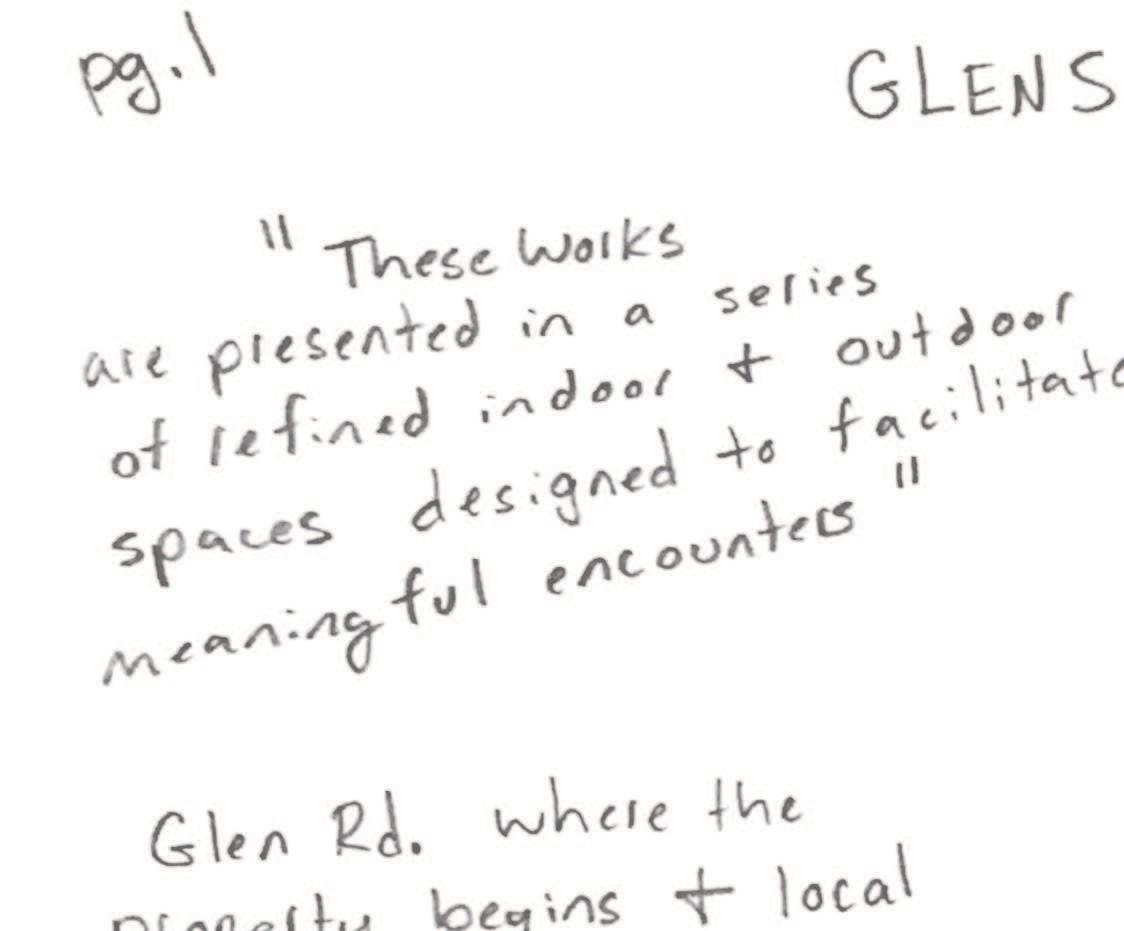 pg.1
GLENS
" These Works
are presented in a series
of refined indoor + outdoor
spaces designed to facilitate
meaningful encounters "
Glen Rd. where the
property begins + local